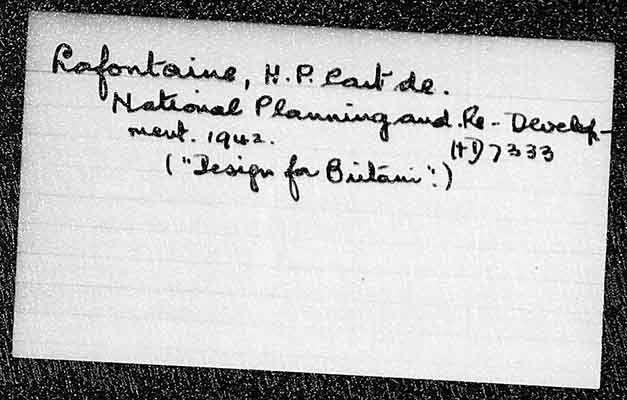 Lafontaine, H.P. Cart de.
National Planning and Re-Develop-
ment. 1942.
HD 7333
("Design for Britain".)